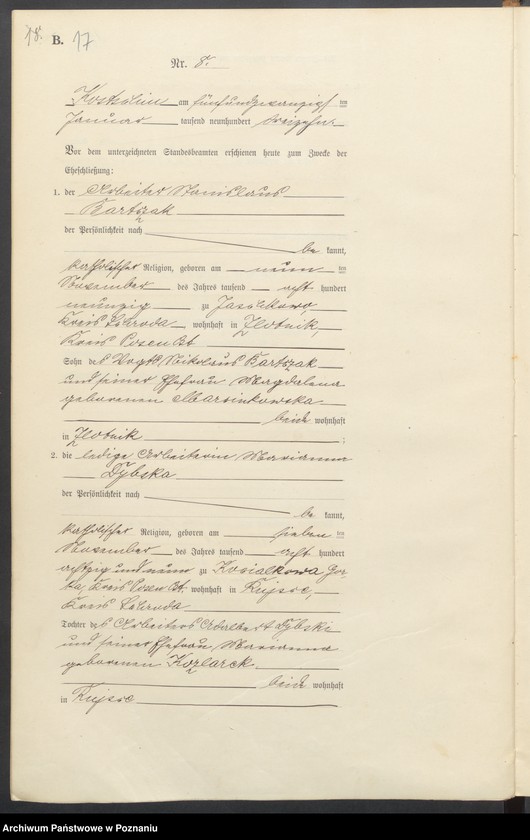 18.
B. 17
Nr. 8.
Kostschin am fünfundzwanzigsten
Januar tausend neunhundert dreizehn.
Vor dem unterzeichneten Standesbeamten erschienen heute zum Zwecke der
Eheschließung:
1. der Arbeiter Stanislaus
Bartszak
der Persönlichkeit nach
be kannt,
katholischer Religion, geboren am neun ten
November des Jahres tausend acht hundert
neunzig zu
Kreis Schroda wohnhaft in Zlotnik,
Kreis Posen Ost
Sohn des Vogts Nikolaus Bartszak
und seiner Ehefrau Magdalena
geborenen Marsinkowska
beide wohnhaft
in Zlotnik ;
2. die ledige Arbeiterin Marianna
Dybska
der Persönlichkeit nach
be kannt,
katholischer Religion, geboren am sieben ten
November des Jahres tausend acht hundert
achtzig und neun zu Kosialkowa Gor-
ka, Kreis Posen Ost, wohnhaft in
Kreis Schroda
Tochter des Arbeiters Adalbert Dybski
und seiner Ehefrau Marianna
geborenen Kozlarek
beide wohnhaft
in
Archiwum Państwowe w Poznaniu